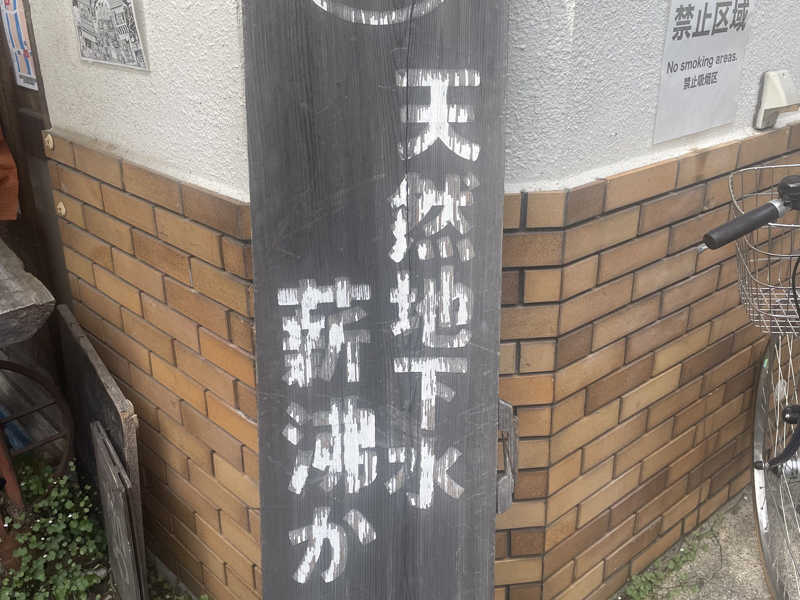 天然地下水
薪沸か
禁止区域
No smoking areas.
禁止吸烟区